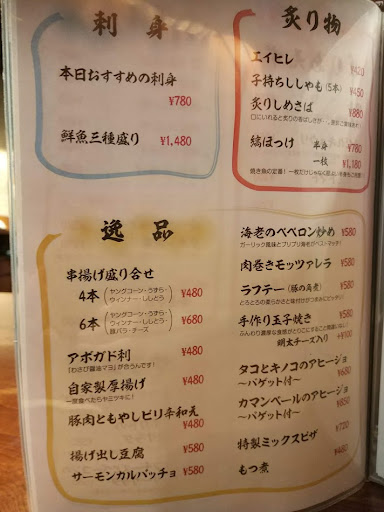 刺身
本日おすすめの刺身
¥780
鮮魚三種盛り ¥1,480
炙り物
エイヒレ ¥420
子持ちししゃも(5本) ¥450
炙りしめさば ¥880
縞ほっけ 半身 ¥780
一枚 ¥1,180
逸品
串揚げ盛り合せ
4本 (ヤングコーン・うずら・ウィンナー・ししとう) ¥480
6本 (ヤングコーン・うずら・ウィンナー・ししとう・豚バラ・チーズ) ¥680
アボガド刺 ¥480
「わさび醤油マヨ」が合うんです!
自家製厚揚げ ¥480
一度食べたらヤミツキに!
豚肉ともやしピリ辛和え ¥480
揚げ出し豆腐 ¥580
サーモンカルパッチョ ¥580
海老のペペロン炒め ¥580
ガーリック風味とプリプリ海老がベストマッチ!
肉巻きモッツァレラ ¥580
ラフテー(豚の角煮) ¥580
とろとろの柔らかさと味付けがつまみにピッタリ!
手作り玉子焼き ¥580
明太チーズ入り +¥100
タコとキノコのアヒージョ ¥680
〜バゲット付〜
カマンベールのアヒージョ ¥850
〜バゲット付〜
特製ミックスピザ ¥720
もつ煮 ¥480